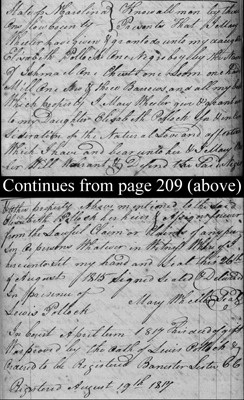 State of Carolina } Know all men by these
Onslow County } Presents that I Mary
Wheeler have given & granted unto my daughter
Elizabeth Pollock One Negro boy by the Name
of Ishmael One Chest one
Mill One & three and all my
Which property I Mary Wheeler give & grant
my Daughter Elizabeth Pollock for & in Con
sideration of the Natural Love and affection
Which I have and bear unto her & I Mary
Wheeler Will Warrant & Defend the said
Continues from page 209 (above)
property above mentioned to the said
Elizabeth Pollock her heirs & Assigns forever
from the Lawful Claim or of any per
son or persons Whatever in Witness Whereof I
hereunto set my hand and Seal this 26th
of August 1815 Signed Sealed & Delivered
In presence of
Mary Wheeler Seal
Lewis Pollock
In Court April Term 1817 this deed of gift
Was proved by the Oath of Lewis Pollock &
Ordered to be Registered Bannister Lester CC
Registered August 19th 1817